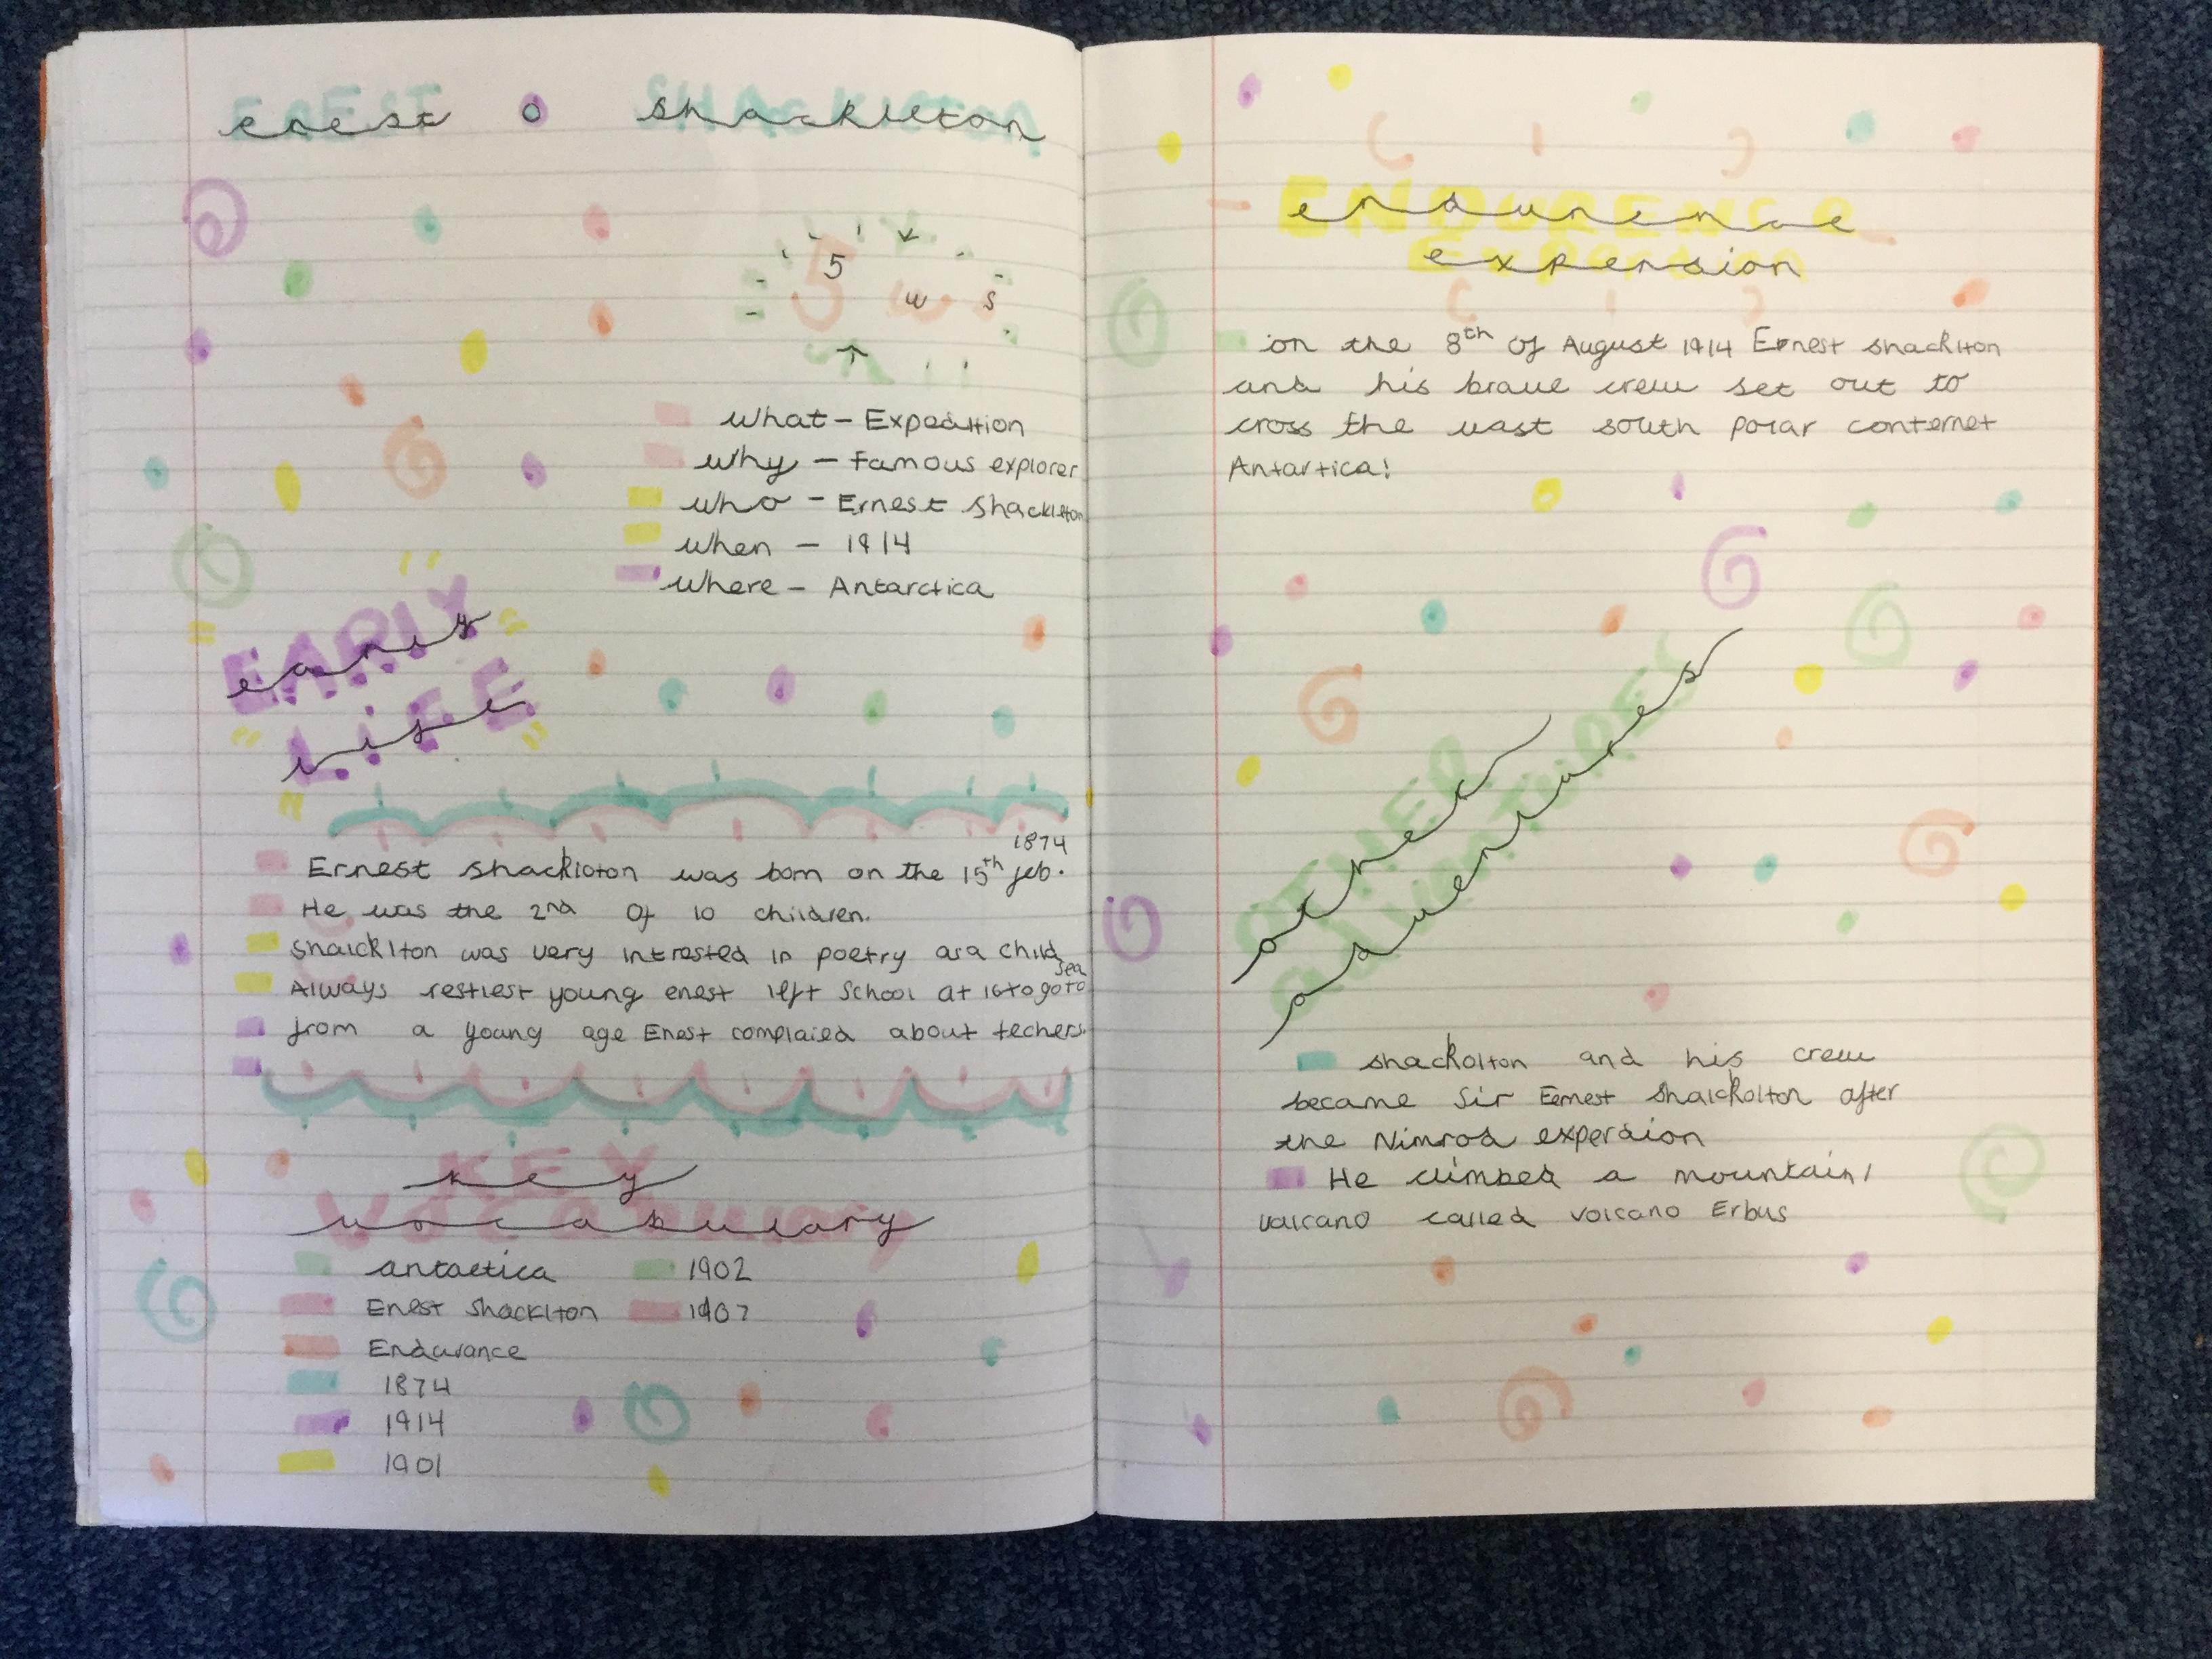 enest o Shackleton
5 w s
what - Expedition
why - Famous explorer
who - Ernest Shackleton
when - 1914
where - Antarctica
early
life
1874
Ernest Shackloton was born on the 15th feb.
He was the 2nd of 10 children.
Shaicklton was very intrested in poetry as a child
sea
Always restlest young enest left School at 16 to go to
from a young age Enest complaied about techers.
key
vocabulary
antactica 1902
Enest Shacklton 1907
Endurance
1874
1914
1901
endurence
experdion
on the 8th of August 1914 Ernest shacklton
and his brave crew set out to
cross the vast south polar conternet
Antartica!
other
adventures
shackolton and his crew
became Sir Eernest Shaickolton after
the Nimrod experdion
He climbed a mountain/
valcano called volcano Erbus